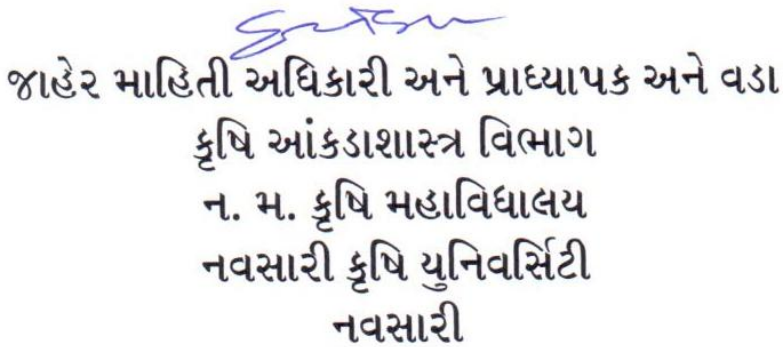 જાહેર માહિતી અધિકારી અને પ્રાધ્યાપક અને વડા
કૃષિ આંકડાશાસ્ત્ર વિભાગ
ન. મ. કૃષિ મહાવિધાલય
નવસારી કૃષિ યુનિવર્સિટી
નવસારી